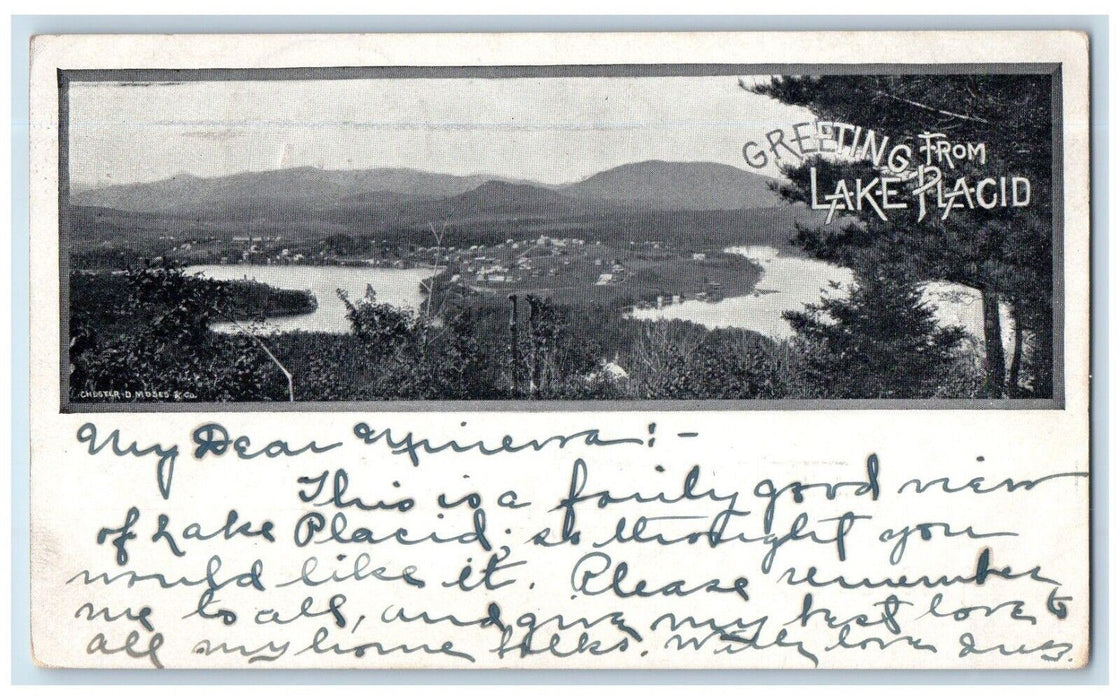 GREETING FROM
LAKE PLACID
CHESTER D. MOSES & Co.
My Dear Minerva! -
This is a fairly good view
of Lake Placid; so thought you
would like it. Please remember
me to all, and give my best love to
all my home folks. With love